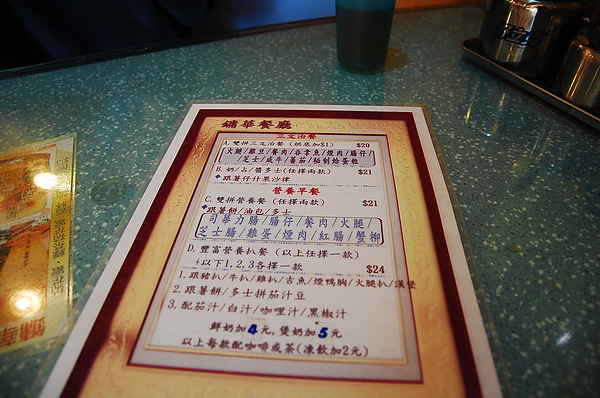 鏽華餐廳
三文治餐
A. 雙拼三文治餐 (烘底加$1) $20
火腿/雞旦/餐肉/吞拿魚/煙肉/腸仔/
芝士/咸牛/蕃茄/秘制蛤蛋粒
B. 奶/占/醬多士(任擇兩款) $21
跟薯仔什果沙律
營養早餐
C. 雙拼營養餐 (任擇兩款) $21
跟薯餅/油包/多士
司華力腸/腸仔/餐肉/火腿/
芝士腸/雞蛋/煙肉/紅腸/蟹柳
D. 豐富營養扒餐 (以上任擇一款)
+以下1,2,3各擇一款 $24
1. 跟豬扒/牛扒/雞扒/吉魚/煙鴨胸/火腿扒/漢堡
2. 跟薯餅/多士拼茄汁豆
3. 配茄汁/白汁/咖哩汁/黑椒汁
鮮奶加4元, 煲奶加5元
以上每款配咖啡或茶(凍飲加2元)